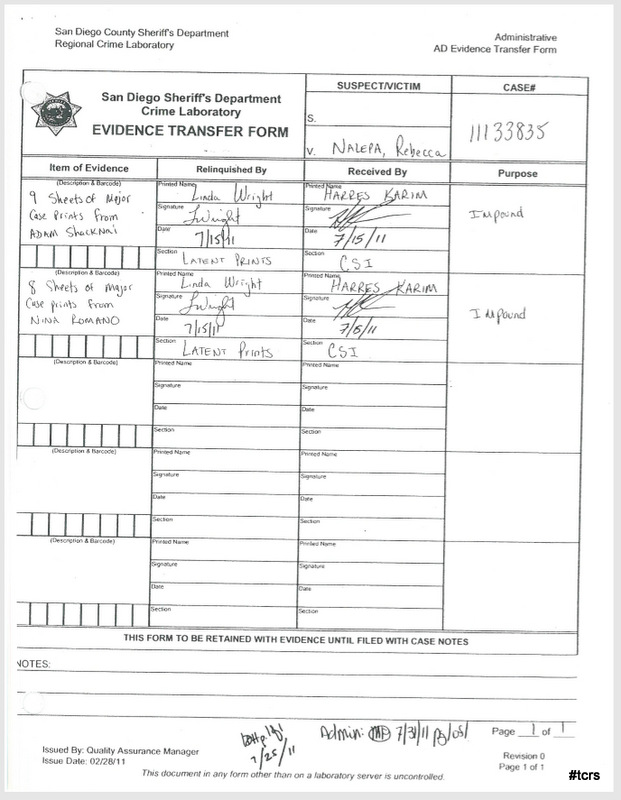 San Diego County Sheriff's Department
Regional Crime Laboratory
Administrative
AD Evidence Transfer Form
San Diego Sheriff's Department
Crime Laboratory
EVIDENCE TRANSFER FORM
SUSPECT/VICTIM
S.
V. NALEPA, Rebecca
CASE#
11133835
Item of Evidence
Relinquished By
Received By
Purpose
(Description & Barcode)
9 Sheets of Major
Case Prints From
ADAM Shacknai
Printed Name
Linda Wright
Signature
LWright
Date
7/15/11
Section
LATENT PRINTS
Printed Name
HARRES KARIM
Signature
Date
7/15/11
Section
CSI
Impound
(Description & Barcode)
8 Sheets of Major
Case prints from
NINA ROMANO
Printed Name
Linda Wright
Signature
LWright
Date
7/15/11
Section
LATENT Prints
Printed Name
HARRES KARIM
Signature
Date
Section
CSI
Impound
(Description & Barcode)
Printed Name
Signature
Date
Section
Printed Name
Signature
Date
Section
(Description & Barcode)
Printed Name
Signature
Date
Section
Printed Name
Signature
Date
Section
(Description & Barcode)
Printed Name
Signature
Date
Section
Printed Name
Signature
Date
Section
THIS FORM TO BE RETAINED WITH EVIDENCE UNTIL FILED WITH CASE NOTES
NOTES:
7/25/11
Admin: 7/31/11
Page 1 of 1
Issued By: Quality Assurance Manager
Issue Date: 02/28/11
Revision 0
Page 1 of 1
This document in any form other than on a laboratory server is uncontrolled.
#tcrs